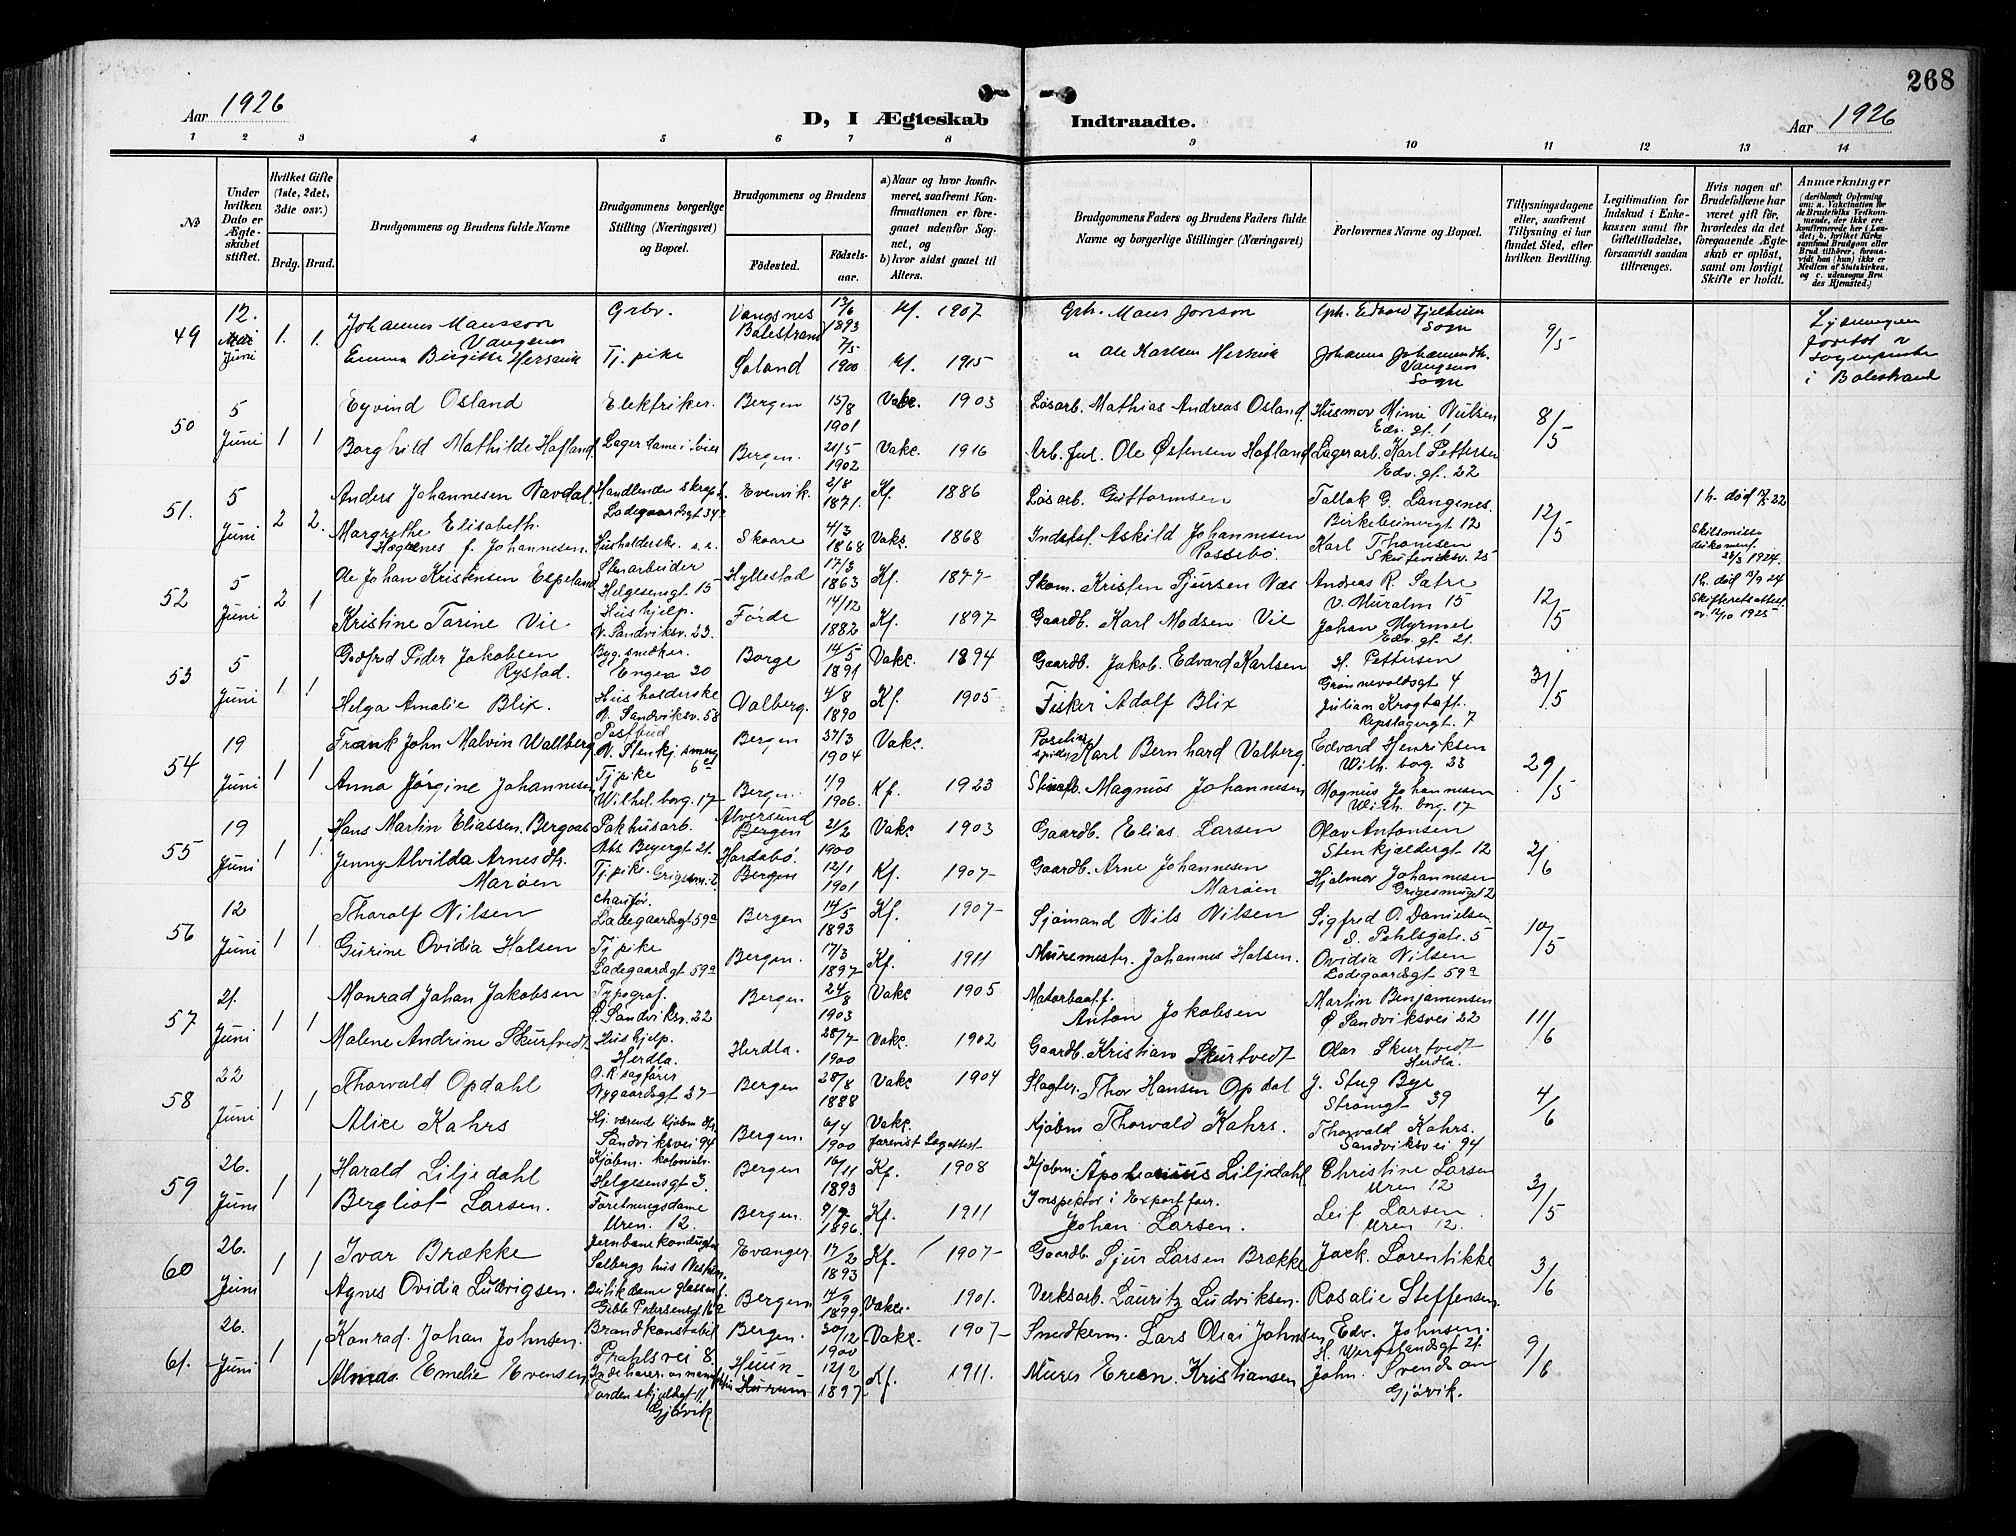 268
Aar 1926
D, I Ægteskab Indtraadte.
Aar 1926
1 2 3 4 5 6 7 8 9 10 11 12 13 14
№
Under hvilken Dato er Ægteskabet stiftet.
Hvilket Gifte (1ste, 2det, 3die osv.)
Brdg. Brud.
Brudgommens og Brudens fulde Navne
Brudgommens borgerlige Stilling (Næringsvei) og Bopæl.
Brudgommens og Brudens
Fødested. Fødselsaar.
a) Naar og hvor konfirmeret, saafremt Konfirmationen er foregaaet udenfor Sognet, og
b) hvor sidst gaaet til Alters.
Brudgommens Faders og Brudens Faders fulde Navne og borgerlige Stillinger (Næringsvei)
Forlovernes Navne og Bopæl.
Tillysningsdagene eller, saafremt Tillysning ei har fundet Sted, efter hvilken Bevilling.
Legitimation for Indskud i Enkekassen samt for Giftetilladelse, forsaavidt saadan tiltrænges.
Hvis nogen af Brudefolkene har været gift før, hvorledes da det foregaaende Ægteskab er opløst, samt om lovligt Skifte er holdt.
Anmærkninger
(deriblandt Oplysning om: a. Vakcination for de Brudefolks Vedkommende, der ikke ere konfirmerede her i Landet, b. hvilket Kirkesamfund Brudgom eller Brud tilhører, forsaavidt han (hun) ikke er Medlem af Statskirken, og c. udensogns Brudes Hjemsted.)
49 12. Juni 1. 1. Johannes Monsson Vangsnes Grbr. Vangsnes Balestrand 13/6 1893 Kf. 1907 Gbr. Mons Jonson Gbr. Edvard Fjelheim Sogn 9/5
Emma Birgitte Hersvik Tj. pike Soland 7/5 1900 Kf. 1915 " Ole Karlsen Hersvik Johanna Johannesdtr. Vangsnes Sogn
Lysningen foretat av sognepresten i Balestrand
50 5 Juni 1 1 Eyvind Osland Elektriker. Bergen 15/8 1901 Vakc. 1903 Løsarb. Mathias Andreas Osland. Husmor Mimi Nilsen Edv. gt. 1 8/5
Borghild Mathilde Hafland Lagerdame i Bergen. 21/5 1902 Vakc. 1916 Arb. ful. Ole Østensen Hafland Lagerarb. Karl Pettersen Edv. gt. 22
51. 5 Juni 2 2. Anders Johannesen Navdal. Handlende Ladegaardsgt 34a Evenvik. 2/8 1871. Kf. 1886 Løsarb. Guttormsen Tollak G. Langenes. Birkebeinergt 12 12/5 1 h. død 7/7 22
Margrethe Elisabeth. Hagenes f. Johannesen. Husholderske. s. s. Skaare 4/3 1868 Vakc. 1868 Indstst. Askild Johannesen Rossebø Karl Thomsen Skuteviksv. 25 Skilsmisse dokument 28/3 1924.
52 5 Juni 2 1 Ole Johan Kristensen Espeland Stenarbeider Helgesensgt 15 Hyllestad 17/3 1863 Kf. 1877 Skom. Kristen Sjursen Næs Andreas R. Satre v. Muralm 15 12/5 1 h. død 11/9 24
Kristine Tarine Vie Hushjelp. N. Sandviksv. 23. Førde 14/12 1882 Kf. 1897 Gaardb. Karl Madsen Vie Johan Myrmel Edv. gt. 21. Skifteretsattest av 12/10 1925
53 5 Juni 1 1 Godfred Peder Jakobsen Rystad. Bygsnedker. Engen 20 Borge 14/5 1891 Vakc. 1894 Gaardb. Jakob. Edvard Karlsen H. Pettersen Grønnevoldsgt 4 31/5
Helga Amalie Blix. Husholderske N. Sandviksv. 58 Valberg. 4/8 1890 Kf. 1905 Fisker Adolf Blix Julian Krogtoft Repslagergt. 7
54 19 Juni 1 1 Frank John Malvin Wallberg Postbud N. Stenkj. smug 6a Bergen 31/3 1904 Vakc. Karl Bernhard Valberg. Edvard Henriksen Wilh. borg. 23 29/5
Anna Jørgine Johannesen Tj pike Wilhel. borg. 17 Bergen. 1/9 1906. Kf. 1923 Stuerb. Magnus Johannesen Magnus Johannesen Wilh. borg. 17
55 19 Juni 1 1. Hans Martin Eliassen Bergaas Pakhusarb. Abs. Beyergt 21. Alversund Bergen 21/2 1900 Vakc 1903 Gaardb. Elias Larsen Olav Antonsen Stenkjældergt 12 2/6
Jenny Alvilda Arnesdtr. Marøen Tj. pike. Grigsm. 2 Hordabø Bergen 12/1 1901 Kf. 1907 Gaardb. Arne Johannesen Marøen Hjalmar Johannesen Grigesmuget 2
56 12 Juni 1 1. Thorolf Nilsen chaufør. Ladegaardsgt 59a Bergen 14/5 1893 Kf. 1907 Sjømand Nils Nilsen Sigfred O. Danielsen. S. Pehlsgate. 5 10/5
Gurine Ovidia Halsen Tj pike Ladegaardsgt 59a Bergen. 17/3 1897 Kf. 1911 Muremestr. Johannes Halsen. Ovidia Nilsen Ladegaardsgt 59a
57 21. Juni 1 1 Monrad Johan Jakobsen Typograf. Ø. Sandviksv. 22 Bergen 24/8 1903 Vakc 1905 Motorbaatf. Anton Jakobsen Martin Benjaminsen Ø Sandviksvei 22 11/6
Malene Andrine Skurtvedt Hushjelp. Herdla. Herdla. 28/7 1900 Vakc. 1902 Gaardb. Kristian Skurtvedt Olav Skurtvedt Herdla.
58 22 Juni 1 1 Thorvald Opdahl O.R. sagfører Nygaardsgt 37 Bergen 28/8 1888 Vakc 1904 Slagter. Thor Hansen Opdal J. Stug Bye Strømgt 39 4/6
Alice Kahrs Hj. værende Kjøbm. dtr. Sandviksvei 94 Bergen. 6/4 1900 Vakc. forevist Legattest Kjøbm Thorvald Kahrs. Thorvald Kahrs. Sandviksvei 94
59 26. Juni 1 1 Harald Liljedahl Kjøbm. kolonialv. Helgesensgt 3. Bergen 16/11 1893 Kf. 1908 Kjøbm. Apolonius Liljedahl Christine Larsen Uren 12 3/5
Bergliot Larsen. Forretningsdame Uren. 12. Bergen. 9/7 1896. Kf. 1911 Inspektør i Exportfor. Johan Larsen. Leif Larsen Uren 12.
60 26. Juni 1 1 Ivar Brække Jernbanekonduktør Solbergs hus Nesttun Evanger. 17/2 1893 Kf. 1907 Gaardb. Sjur Larsen Brække Jack. Lorentikke 3/6
Agnes Ovidia Ludvigsen. Butikdame glassm. Gible Pedersensgt 16a Bergen 14/9 1899 Vakc. 1901. Verksarb. Lauritz Ludviksen. Rosalie Steffensen
61. 26. Juni 1 1 Konrad. Johan Johnsen. Brandkonstabel Prahlsvei 8. Bergen. 30/12 1900 Vakc. 1907 Snedkerm. Lars Olai Johnsen Edv. Johnsen. H. Wergelandsgt 21. 9/6
Alvida Emelie Evensen Tordenskjoldsgt 11. Gjøvik Hurum 12/2 1897 Kf. 1911. Murer Even Kristiansen John. Svendsen Gjøvik.